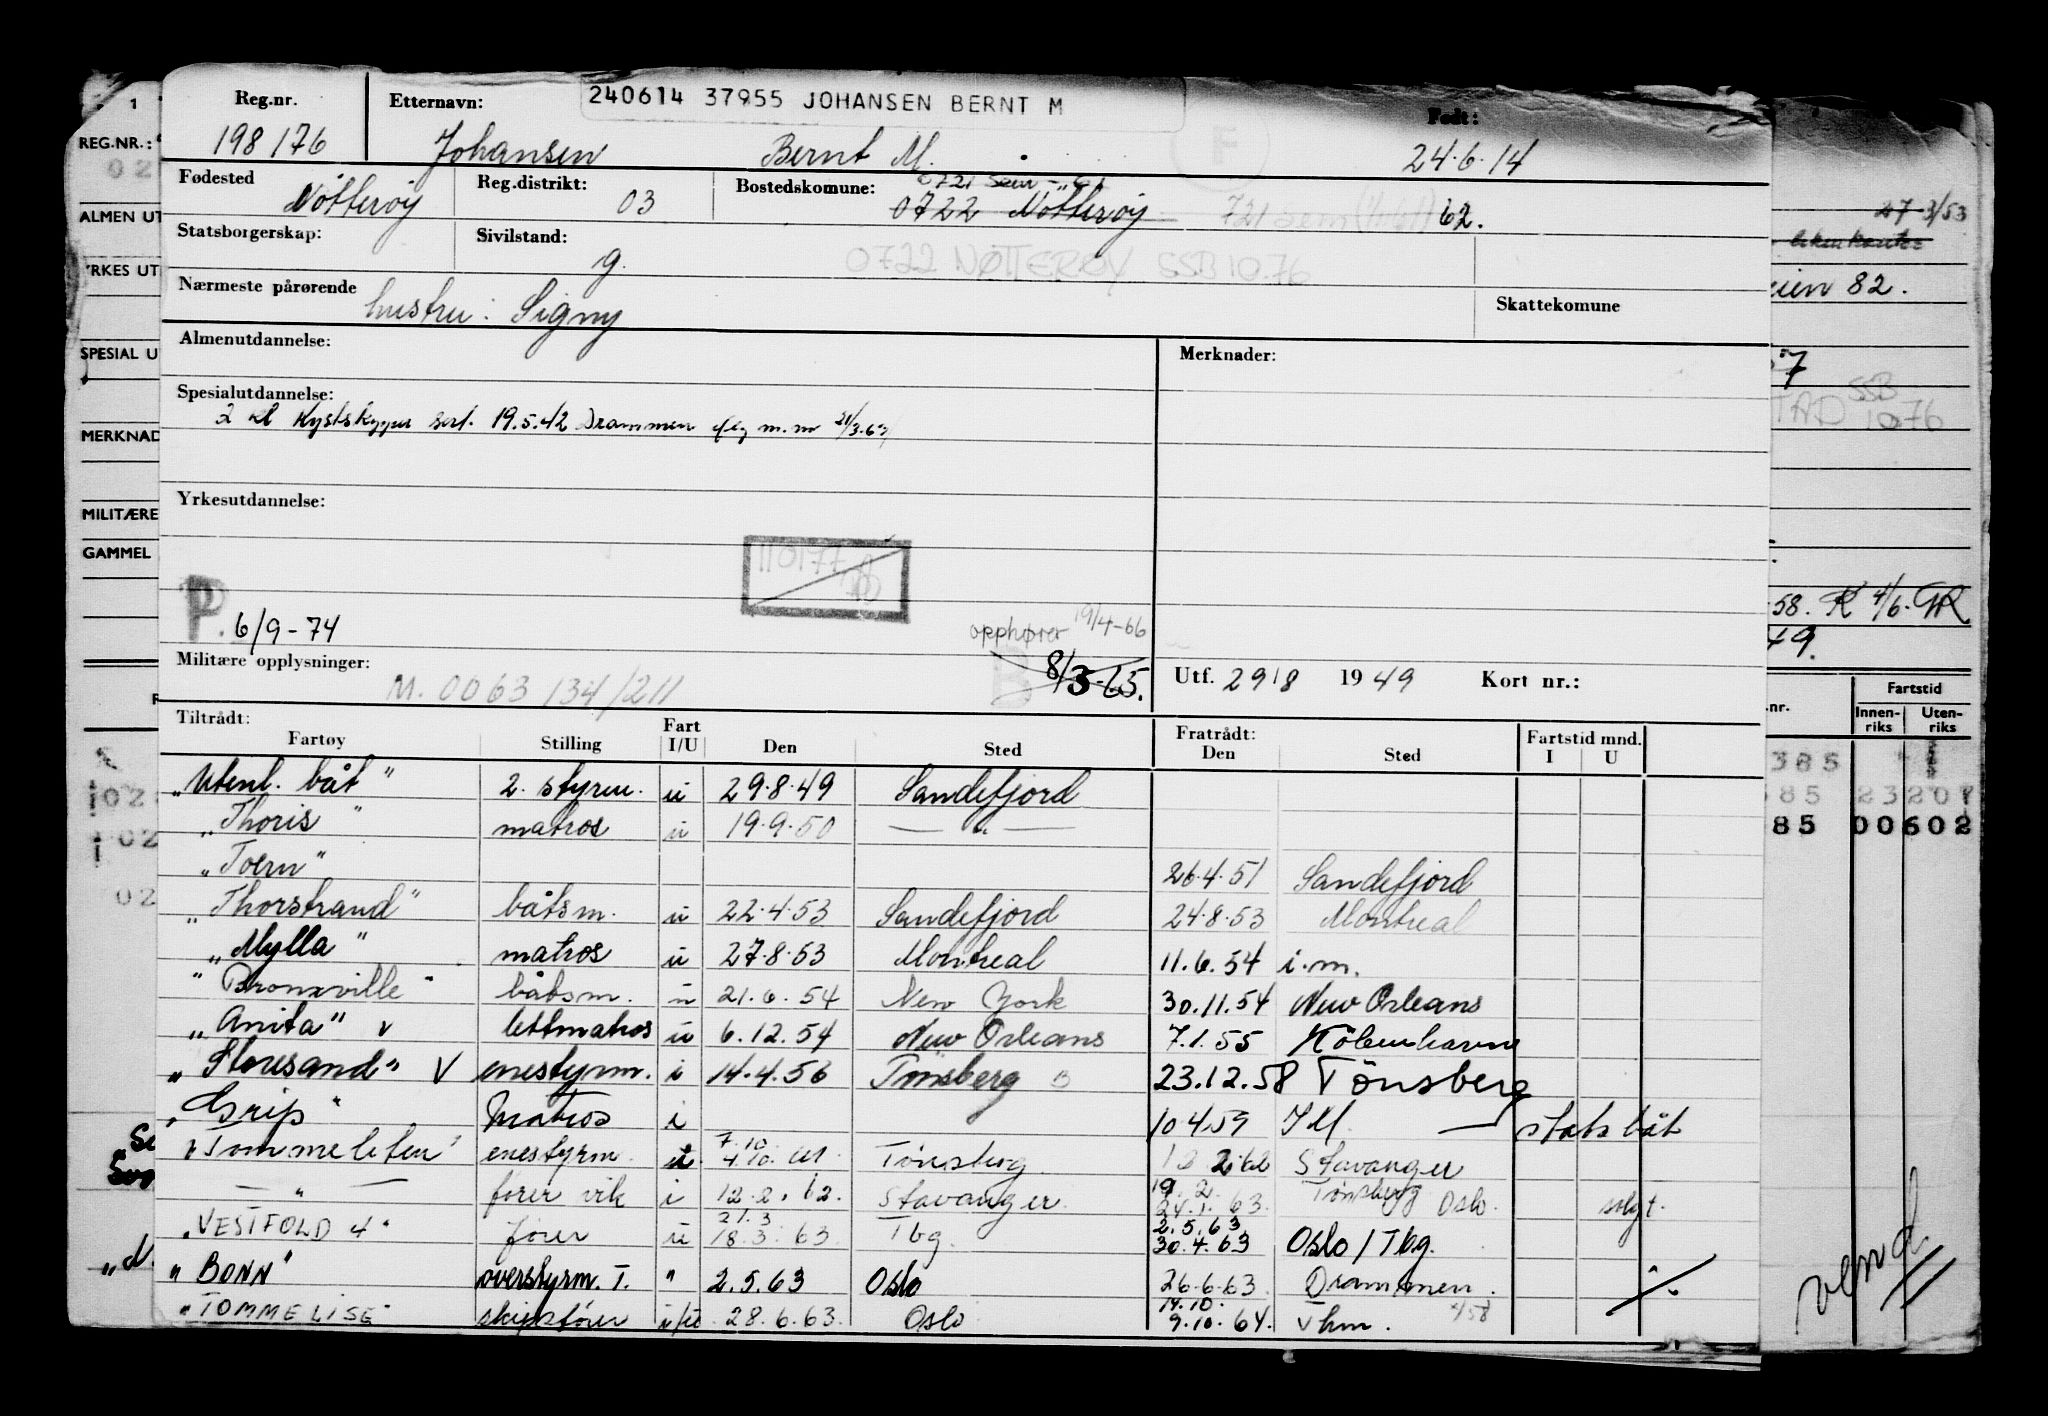 Reg.nr. Etternavn: 240614 37955 JOHANSEN BERNT M Født:
198176 Johansen Bernt M. 24.6.14
F
Fødested Nøtterøy Reg.distrikt: 03 Bostedskomune: 0721 Sem 0722 Nøtterøy 721 Sem 62.
Statsborgerskap: Sivilstand: g. 0722 NØTTERØY SSB 10.76
Nærmeste pårørende hustru: Signy Skattekomune
Almenutdannelse: Merknader:
Spesialutdannelse:
2 kl Kystskipper sert. 19.5.42 Drammen m.m 21/3.63
Yrkesutdannelse:
110177
P. 6/9-74
opphører 19/4-66
8/3-65.
Militære opplysninger: M. 0063 134/211
Utf. 29/8 1949 Kort nr.:
Tiltrådt: Fratrådt: Fartstid mnd.
Fartøy Stilling Fart I/U Den Sted Den Sted I U
"Utenl. båt" 2. styrm. u 29.8.49 Sandefjord
"Thoris" matros u 19.9.50 — " —
"Toern" 26.4.51 Sandefjord
"Thorstrand" båtsm. u 22.4.53 Sandefjord 24.8.53 Montreal
"Mylla" matros u 27.8.53 Montreal 11.6.54 i.m.
"Bronxville" båtsm. u 21.6.54 New York 30.11.54 New Orleans
"Anita" v lettmatros u 6.12.54 New Orleans 7.1.55 Köbenhavn
"Storesand" V enestyrm. i 14.4.56 Tønsberg 23.12.58 Tönsberg
"Grip" Matros i 10 4.59 — statsbåt
"Tommeliten" enestyrm. 7.10 4.10. Tønsberg Stavanger
— " — fører vik i 12.2.62. Stavanger 19.2. 24.1.63. Tønsberg Oslo. solgt.
"VESTFOLD 4" fører u 21.3 18.3.63 Tbg. 2.5.63 30.4.63 Oslo / Tbg.
"BONN" overstyrm. T. " 2.5.63 Oslo 26.6.63 Drammen.
"TOMMELISE" skipsfører i/u. 28.6.63. Oslo 14.10. 9.10.64. Vhm.
1
REG.NR.:
02
ALMEN UT
YRKES UT
SPESIAL U
MERKNAD
MILITÆRE
GAMMEL
02
02
02
27-3/53
eien 82.
57
SSB
TAD 1076
58. K 4/6. GR
49.
.nr. Fartstid
Innen-riks Uten-riks
385
85 23201
85 00602
vend